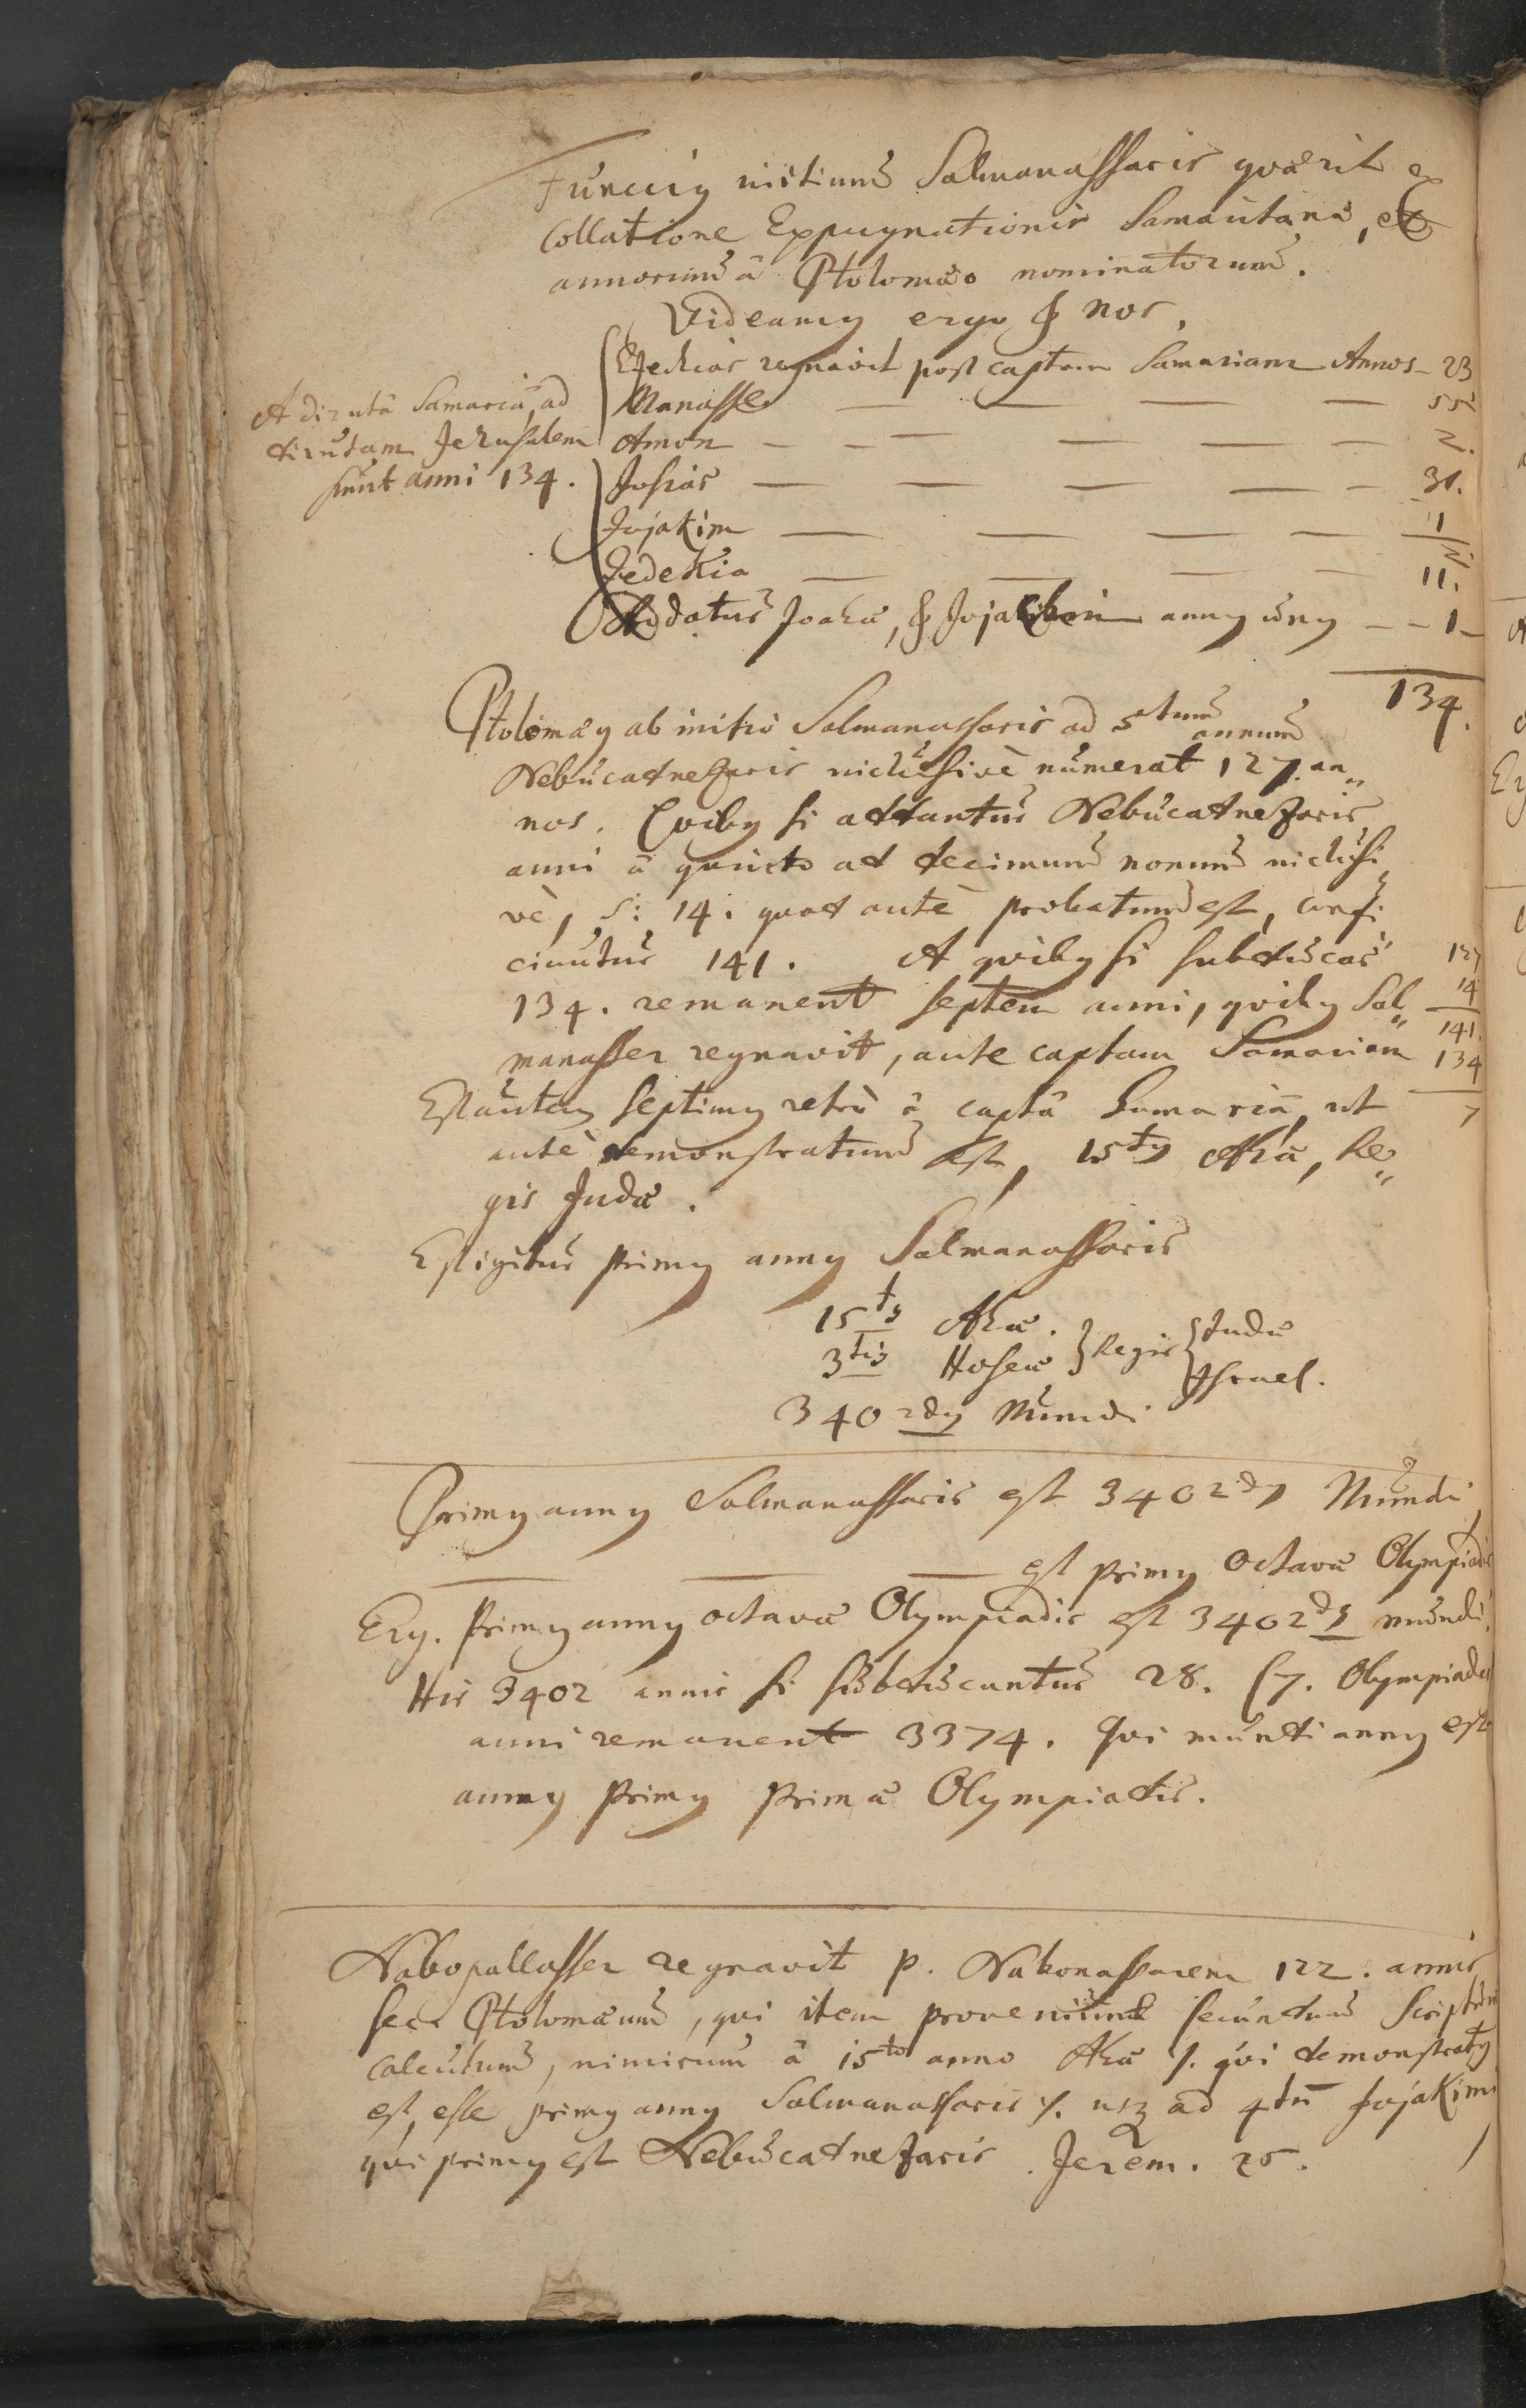 Funccius initium Salmanassaris quærit ex
Collatione Expugnationis Samaritanæ, et
annorum â Ptolomæo nominatorum.
Videamus ergo & nos,
Ezechias regnavit post captam Samariam Annos - 23
Manasse — — — — 55
Amon — — — — 2.
Josias — — — — 31.
Jojakim — — — — 11
Zedekia — — — — 11.
Addatur Joahaz, & Jojachin annus unus - - 1 -
134.
A dirutâ Samariâ ad
dirutam Jerusalem
sunt anni 134.
Ptolomæus ab initio Salmanassaris ad 5tum annum
Nebucadnezaris inclusivè numerat 127. an„
nos. Quibus si addantur Nebucadnezaris
anni â quinto ad decimum nonum inclusi
vè, s: 14. quod antè probatum est, confi
ciuntur 141. A quibus si subducas
134. remanent septem anni, quibus Sal„
manasser regnavit, ante captam Samariam
127
14
141.
134
7
Est autem septimus retrò â captâ Samariâ, ut
antè demonstratum est, 15tus Ahaz, Re„
gis Judæ.
Est igitur primus annus Salmanassaris
15tus Ahaz.
3tius Hoseæ } Regis { Judæ
Israel.
3402dus Mundi
Primus annus Salmanassaris est 3402dus Mundi
— — — est primus octavæ Olympiadis
Erg. Primus annus octavæ Olympiadis est 3402dus mundi.
His 3402 annis si subducantur 28. (7. Olympiades
anni remanent 3374. Qui mundi annus est
annus primus primæ Olympiadis.
Nabopallasser regnavit p. Nabonassarem 122. annis
sec. Ptolomæum, qui item proveniunt secundum Scripturæ
calculum, nimirum â 15to anno Ahaz /. qui demonstratus
est, esse primus annus Salmanassaris /. usq ad 4tum Jojakimi
qui primus est Nebucadnezaris. Jerem. 25.